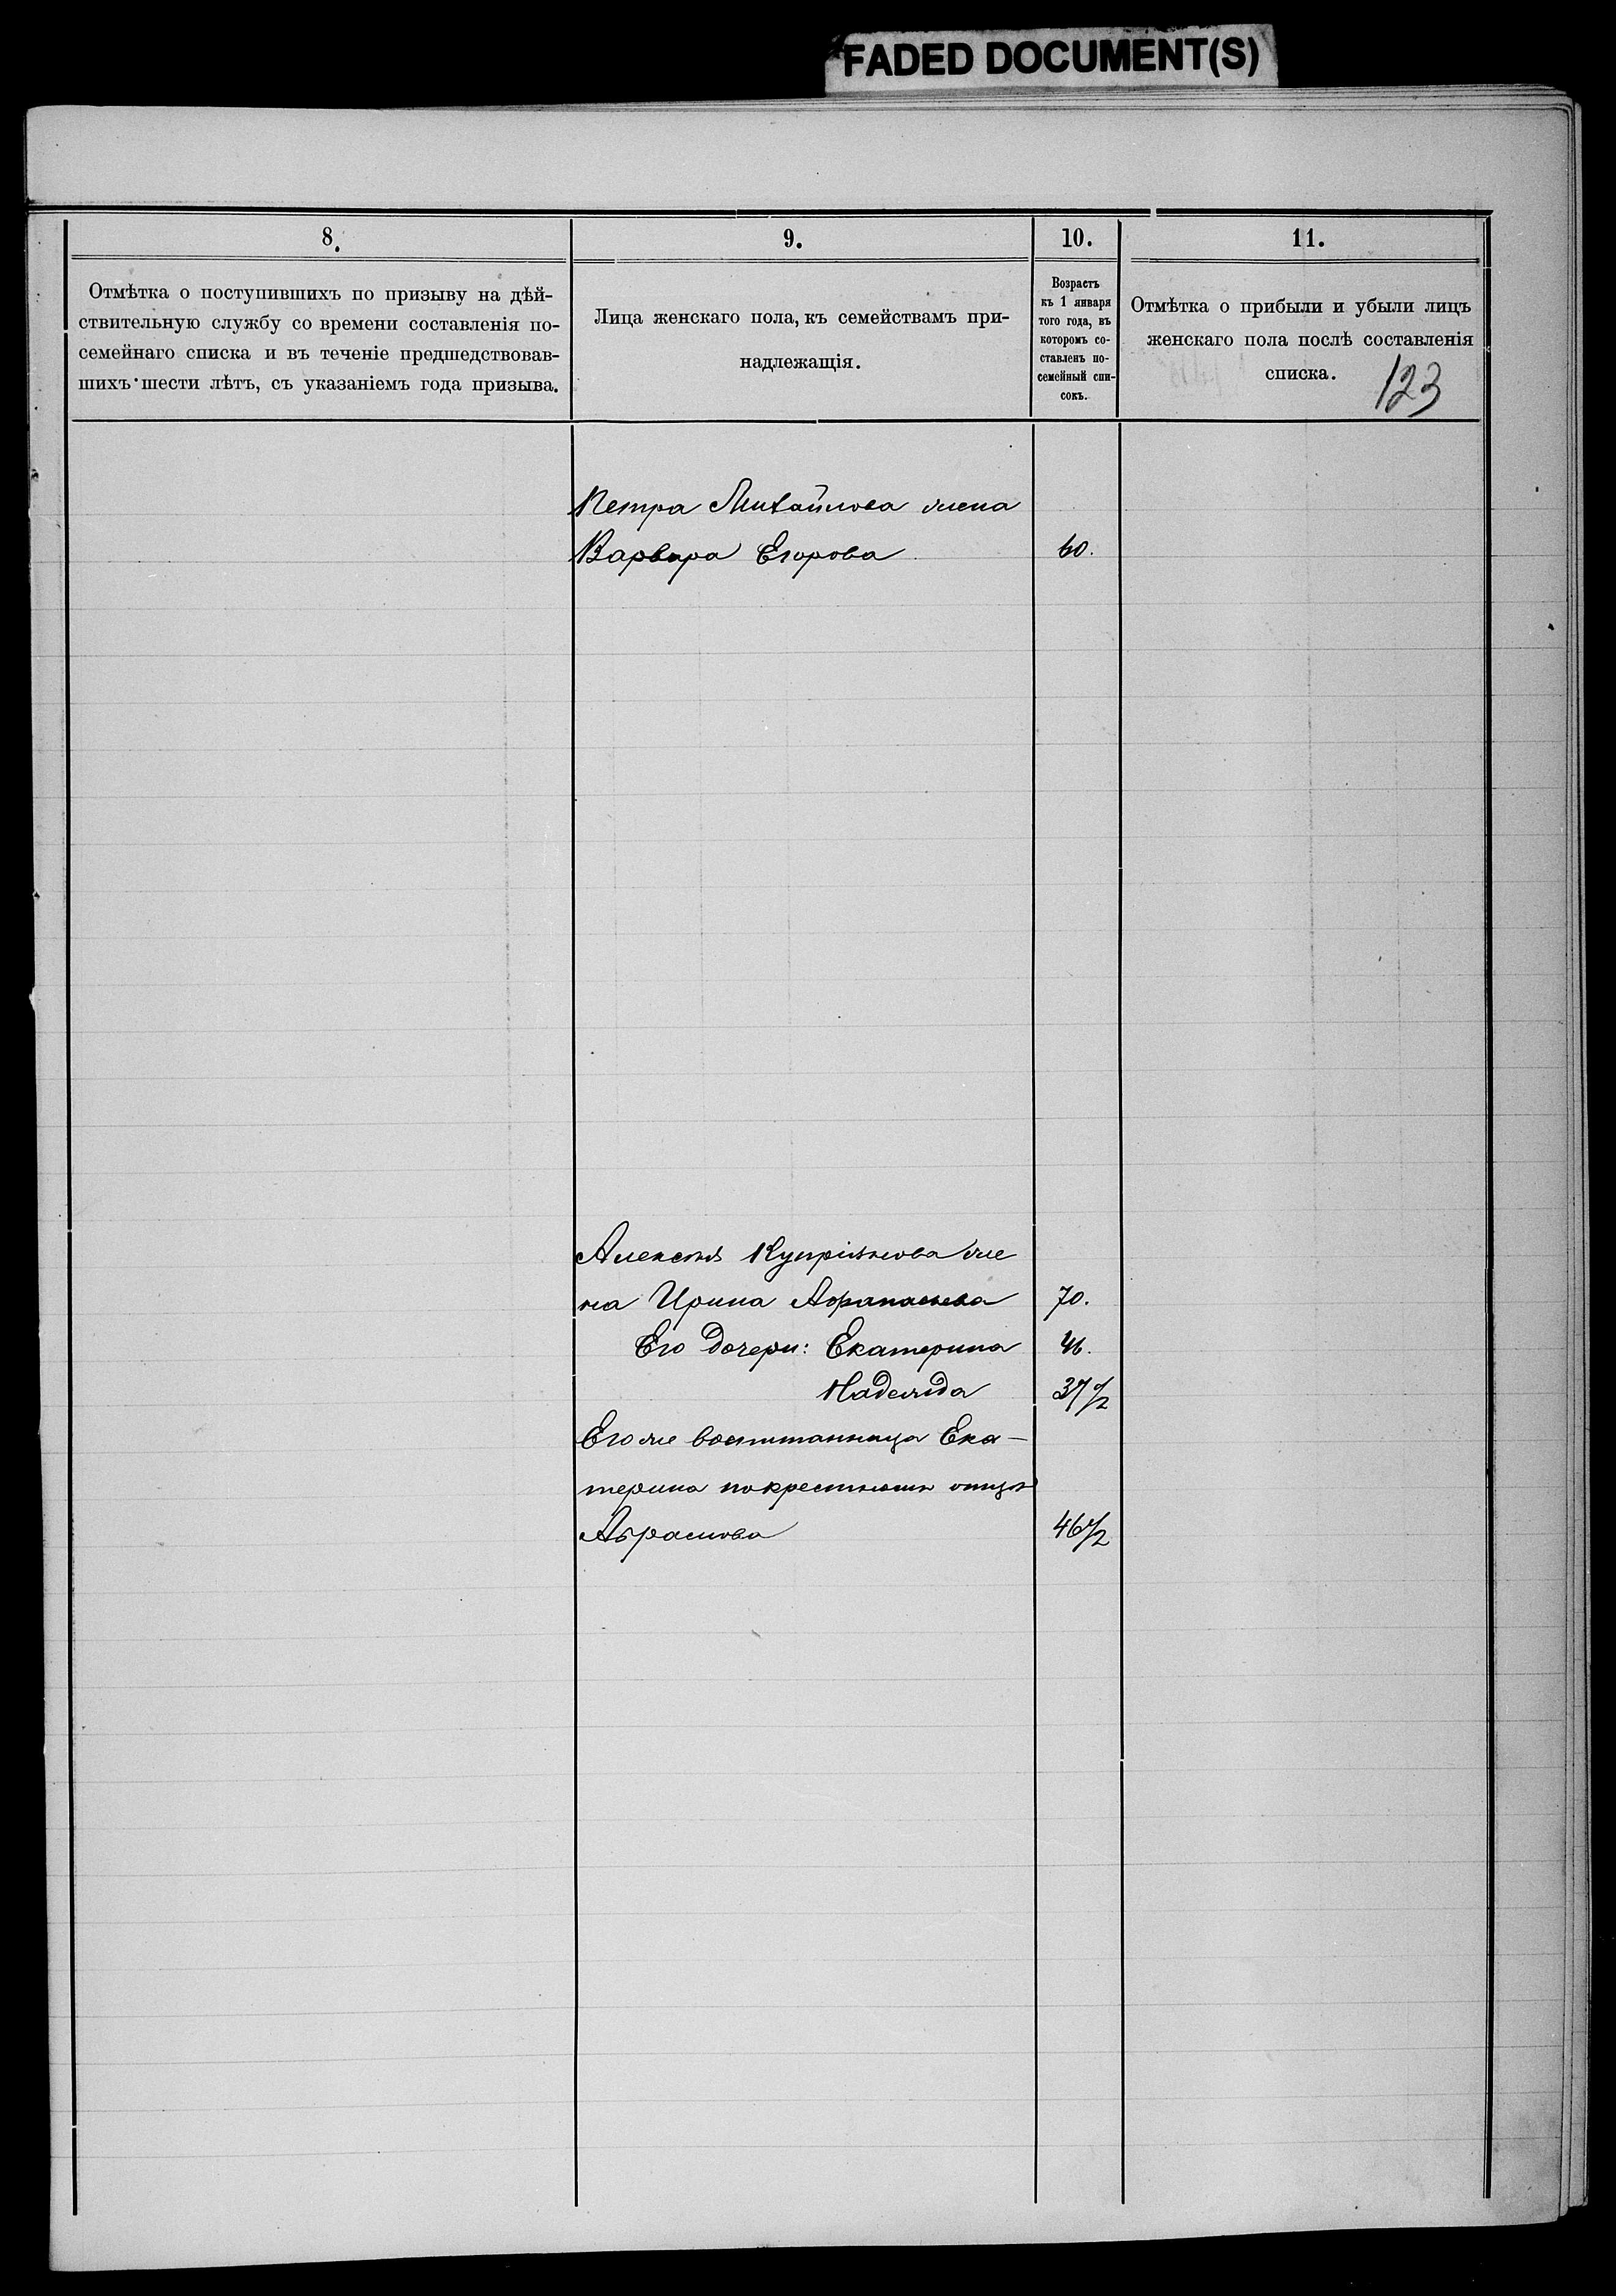 FADED DOCUMENT(S)
8.
Отмѣтка о поступившихъ по призыву на дѣй-
ствительную службу со времени составленія по-
семейнаго списка и въ теченіе предшедствовав-
шихъ шести лѣтъ, съ указаніемъ года призыва.
9.
Лица женскаго пола, къ семействамъ при-
надлежащія.
10.
Возрастъ
къ 1 января
того года, въ
которомъ со-
ставленъ по-
семейный спи-
сокъ.
11.
Отмѣтка о прибыли и убыли лицъ
женскаго пола послѣ составленія
списка.
123
Петра Михайлова жена
Варвара Егорова 60.
Алексѣя Купріянова же
на Ирина Афанасьева 70.
Его дочери: Екатерина 41.
Надежда 37 1/2
Его же воспитанница Ека-
терина по крестному отцу
Абрамова 46 1/2